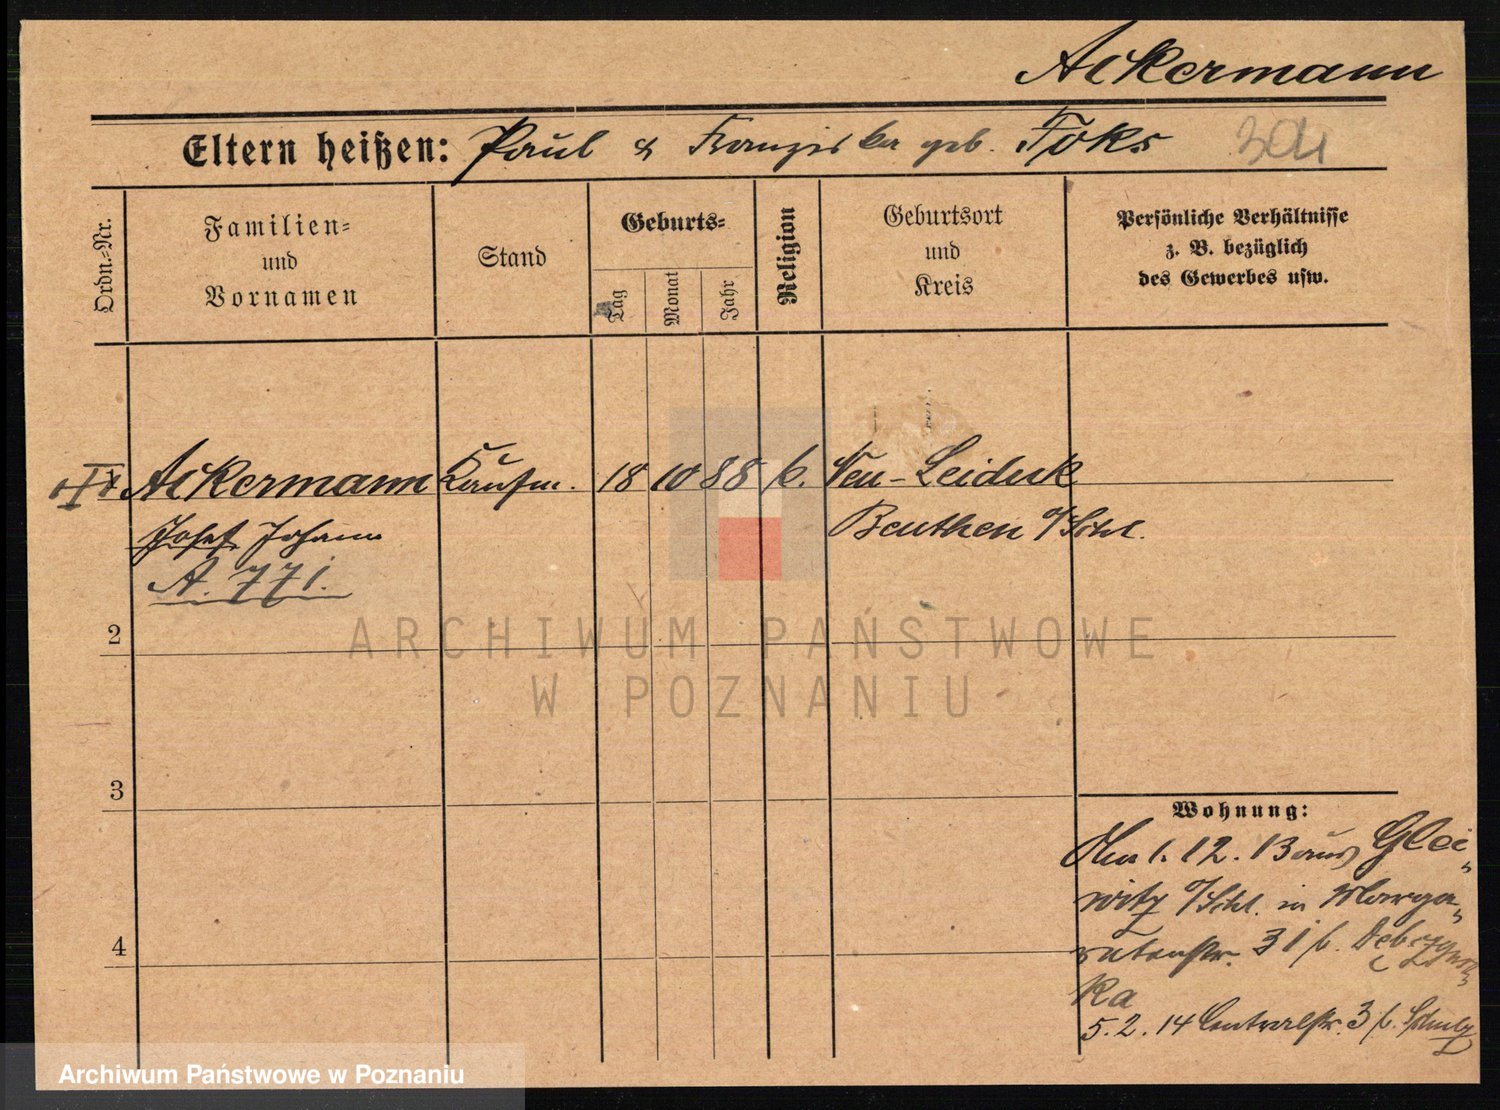 Ackermann
Eltern heißen: Paul & Franziska geb. Foks 304
Ordn.-Nr.
Familien-
und
Vornamen
Stand
Geburts-
Tag
Monat
Jahr
Religion
Geburtsort
und
Kreis
Persönliche Verhältnisse
z. B. bezüglich
des Gewerbes usw.
Ackermann Kaufm. 18 10 88 k. Neu-
Josef Johann Beuthen O/Schl.
A. 771.
2
ARCHIWUM PAŃSTWOWE
W POZNANIU
3
Wohnung:
1.12.13 aus Glei„
witz O/Schl. in Marga„
retenstr. 31 b.
4
ka
5.2.14 Centralstr. 3 b. Schulz
Archiwum Państwowe w Poznaniu